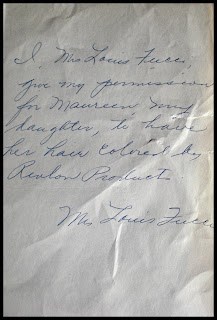 I, Mrs Louis Fucci,
give my permission
for Maureen my
daughter, to have
her hair colored by
Revlon Products.
Mrs Louis Fucci